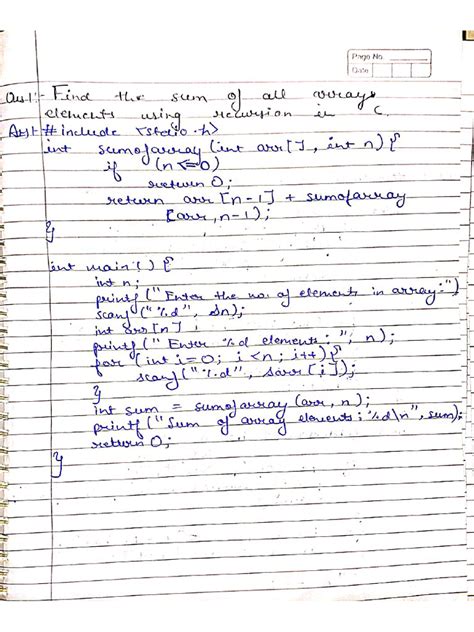 Page No.
Date
Qus1:- Find the sum of all arrays
elements using recursion in C.
Ans1:- #include <stdio.h>
int sumofarray (int arr[], int n) {
if (n<=0)
return 0;
return arr [n-1] + sumofarray
[arr, n-1);
}
int main() {
int n;
printf ("Enter the no. of elements in array:")
scanf ("%d", &n);
int arr [n]
printf (" Enter %d elements: ", n);
for (int i=0; i<n; i++) {
scanf ("%d", &arr [i]);
}
int sum = sumofarray (arr, n);
printf ("Sum of array elements: %d\n", sum);
return 0;
}